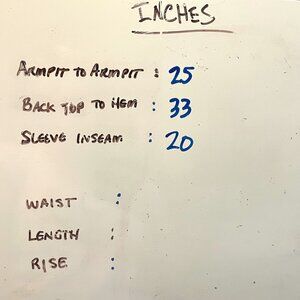 INCHES
ARMPIT TO ARMPIT : 25
BACK TOP TO HEM : 33
SLEEVE INSEAM : 20
WAIST :
LENGTH :
RISE :